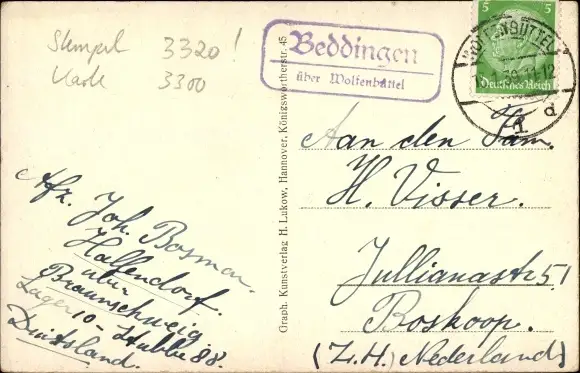 Stempel 3320!
Karte 3300
Beddingen
über Wolfenbüttel
5 5
Deutsches Reich
WOLFENBÜTTEL
d
1
Aan den Fam.
H. Visser.
Jullianastr 51
Boskoop.
(Z.H.) Nederland)
Afz. Joh. Bosman.
Hallendorf.
über
Braunschweig.
Lager 10 - Stubbe 88.
Duitsland.
Graph. Kunstverlag H. Lukow, Hannover, Königswortherstr. 45